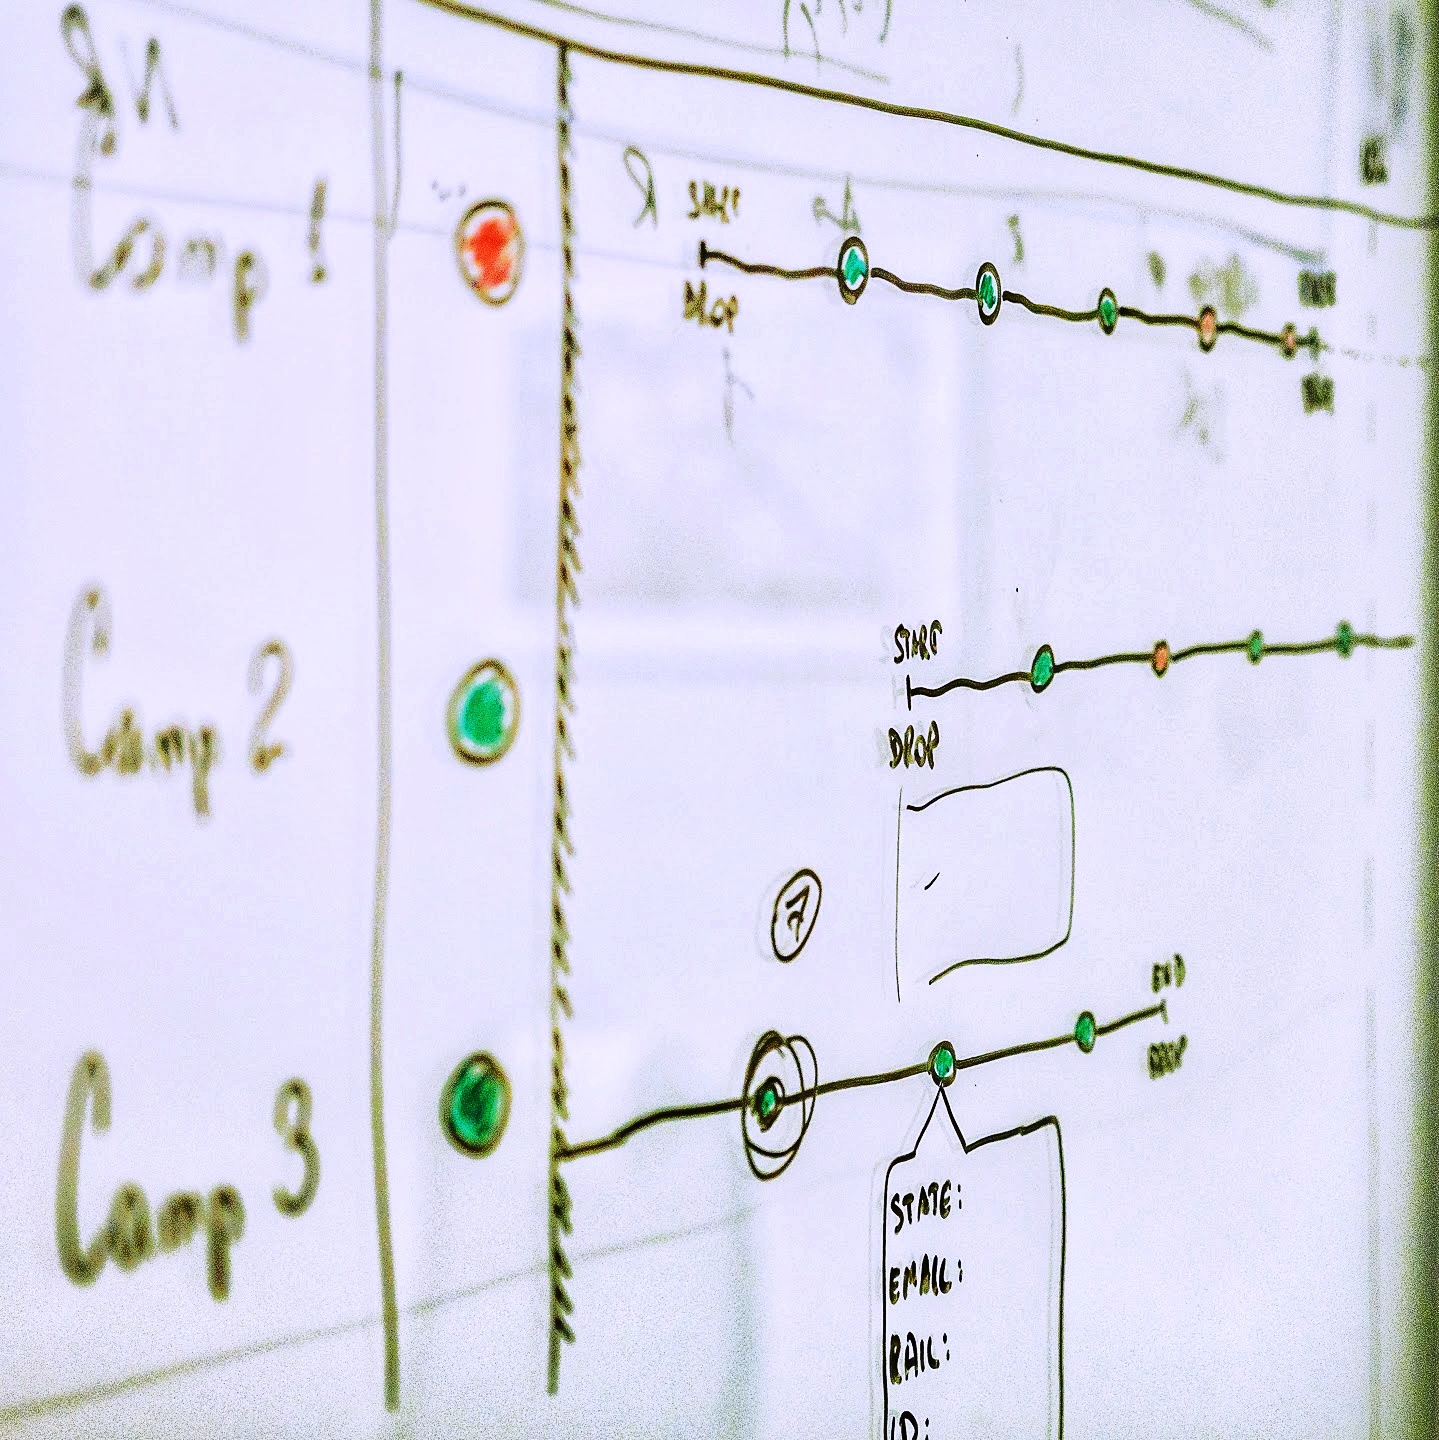 Camp 1
START
DROP
Camp 2
START
DROP
7
Camp 3
END
DROP
STATE:
EMAIL:
RAIL:
ID: